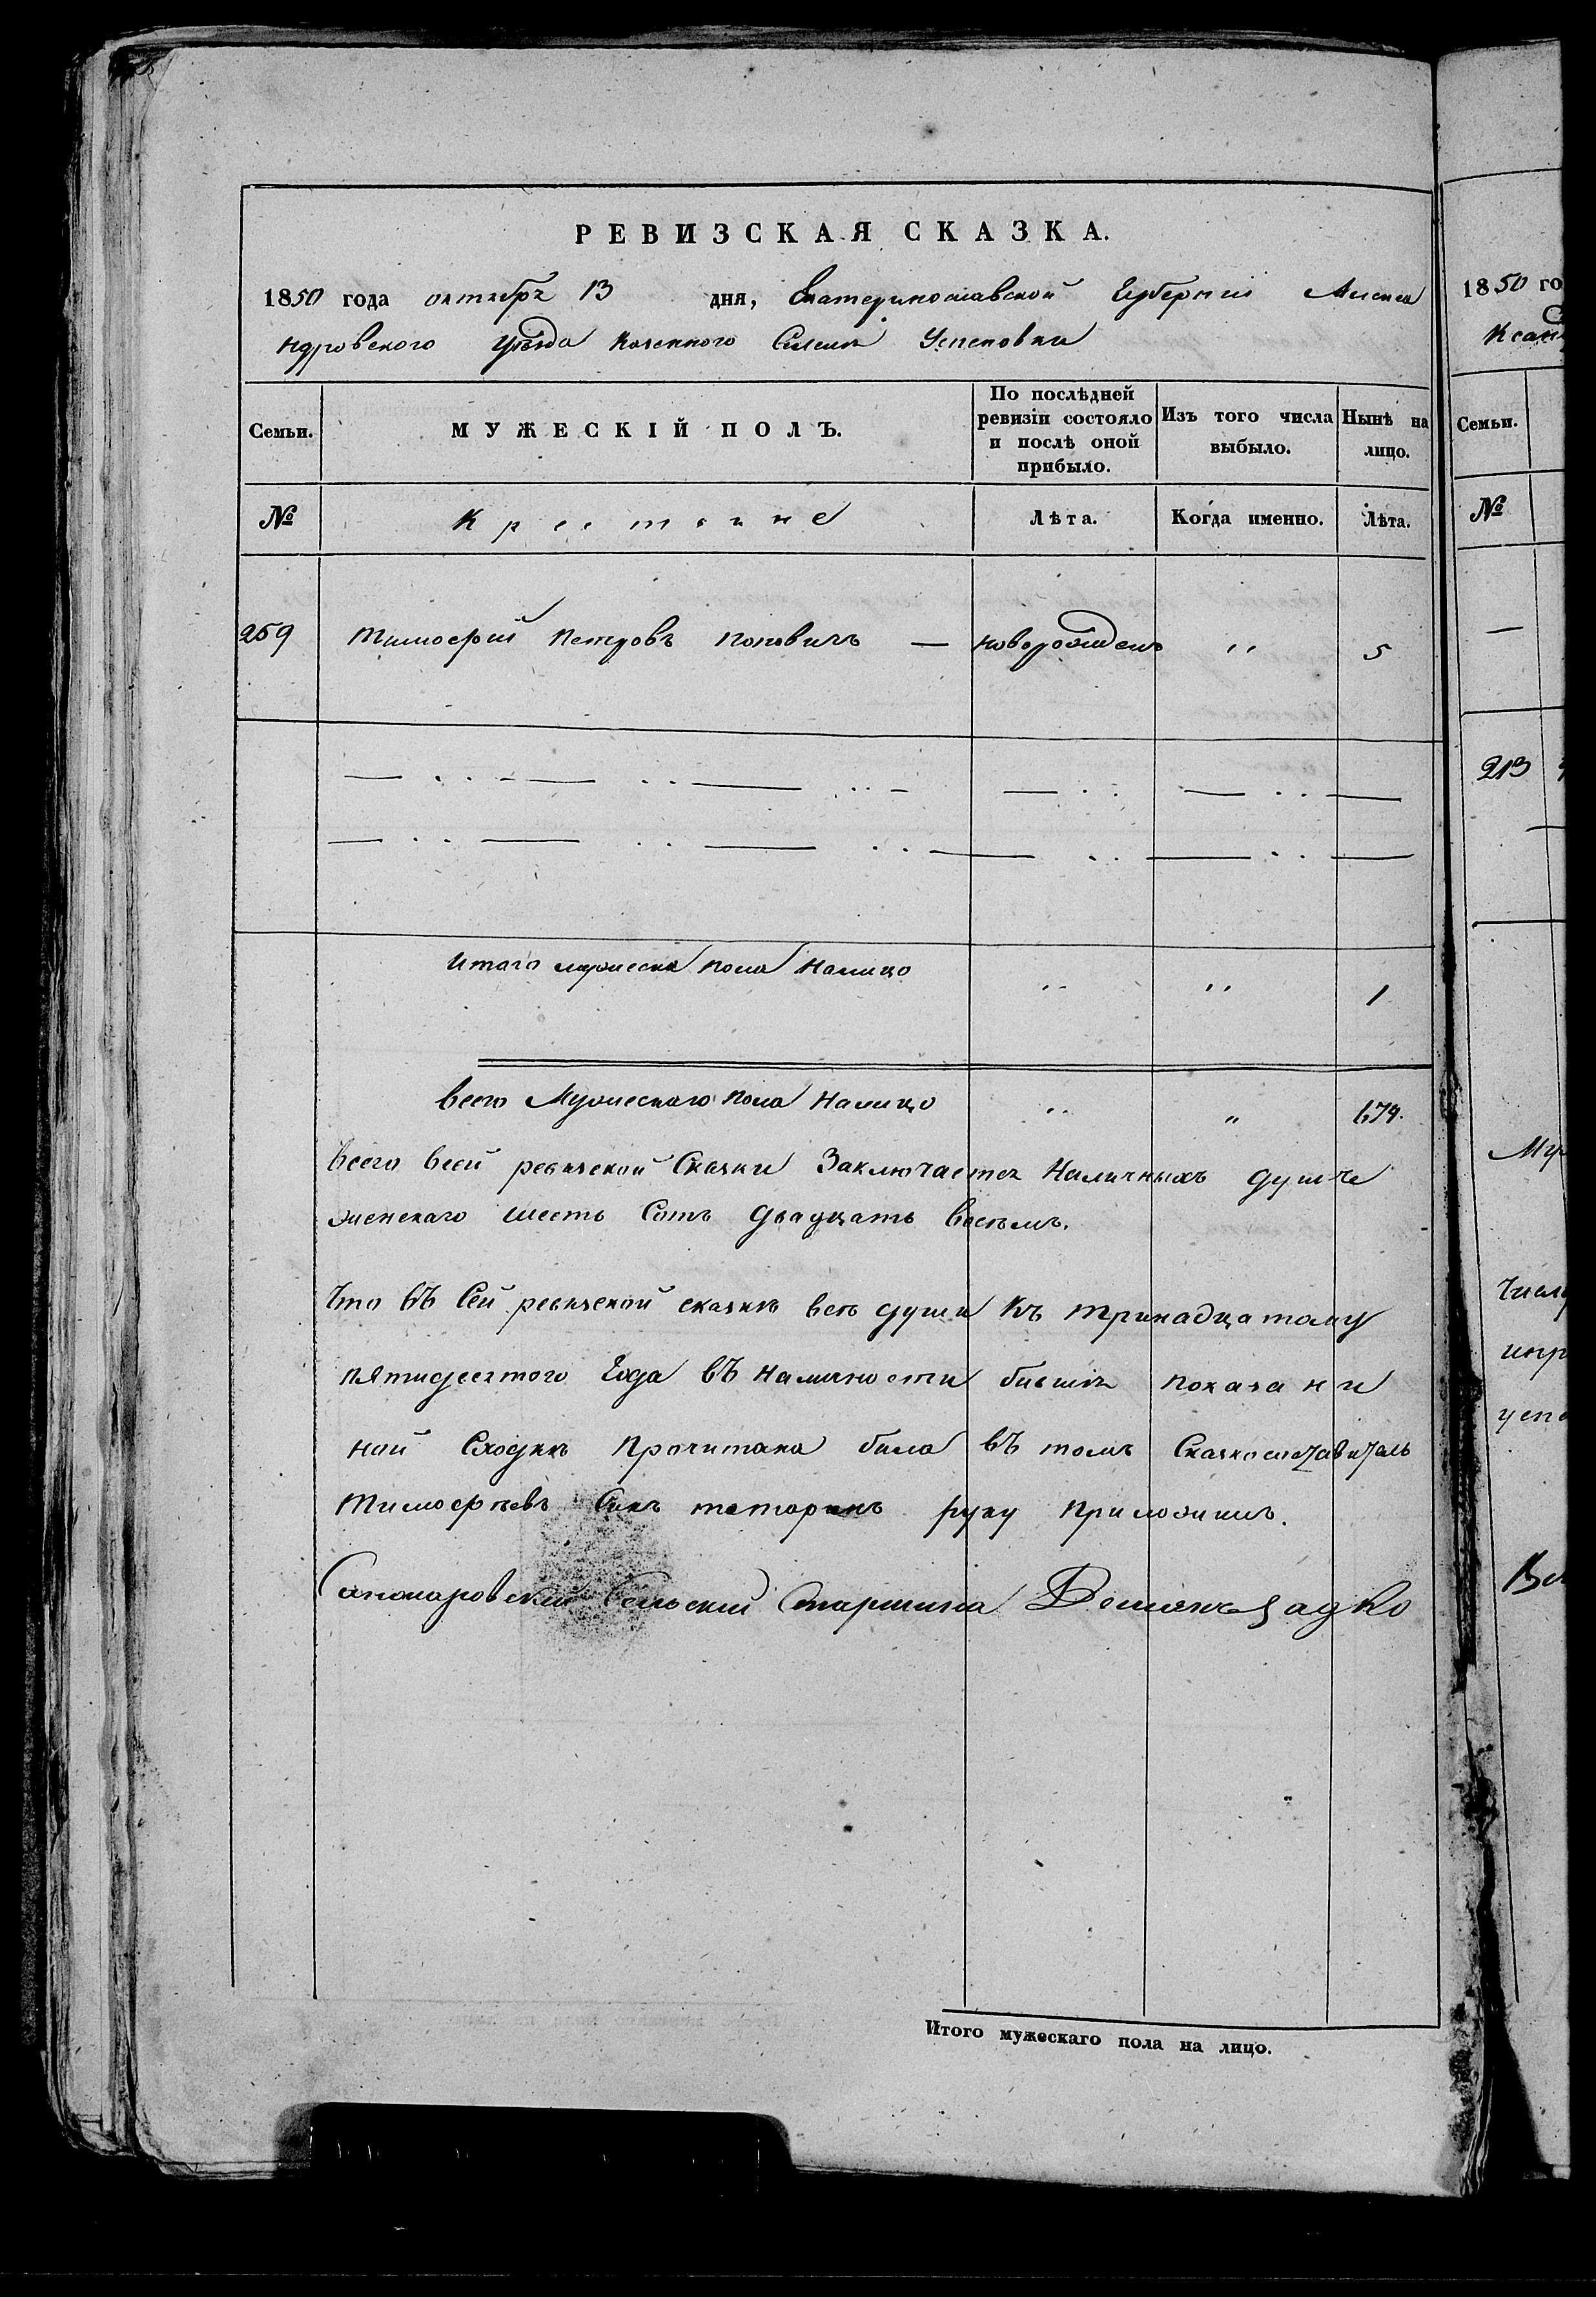 РЕВИЗСКАЯ СКАЗКА.
1850 года октября 13 дня, Екатеринославской Губернии Алекса
ндровского уѣзда казенного Селенія Успеновки
Семьи.
МУЖЕСКІЙ ПОЛЪ.
По послѣдней
ревизіи состояло
и послѣ оной
прибыло.
Изъ того числа
выбыло.
Нынѣ на
лицо.
№
Крестяне
Лѣта.
Когда именно.
Лѣта.
259 Тимофей Петровъ Поповичъ — новорожденъ " 5
Итаго мужеска пола налицо " " 1
Всего Мужескаго пола налицо " " 674.
Всего всей ревизской Сказки Заключается Наличныхъ душъ
женскаго шесть Сотъ двадцать восѣмъ.
Что въ Сей ревизской сказкѣ всѣ души Къ тринадцатому
пятидесятого Года въ наличности бившия показани
ной Сходкѣ Прочитана била въ томъ Сказкосоставитель
Тимофѣевъ Синъ татаринъ руку приложилъ.
Сельский Старшина
Итого мужескаго пола на лицо.
1850 го
Ксан
Семьи.
№
—
213
Му
Числ